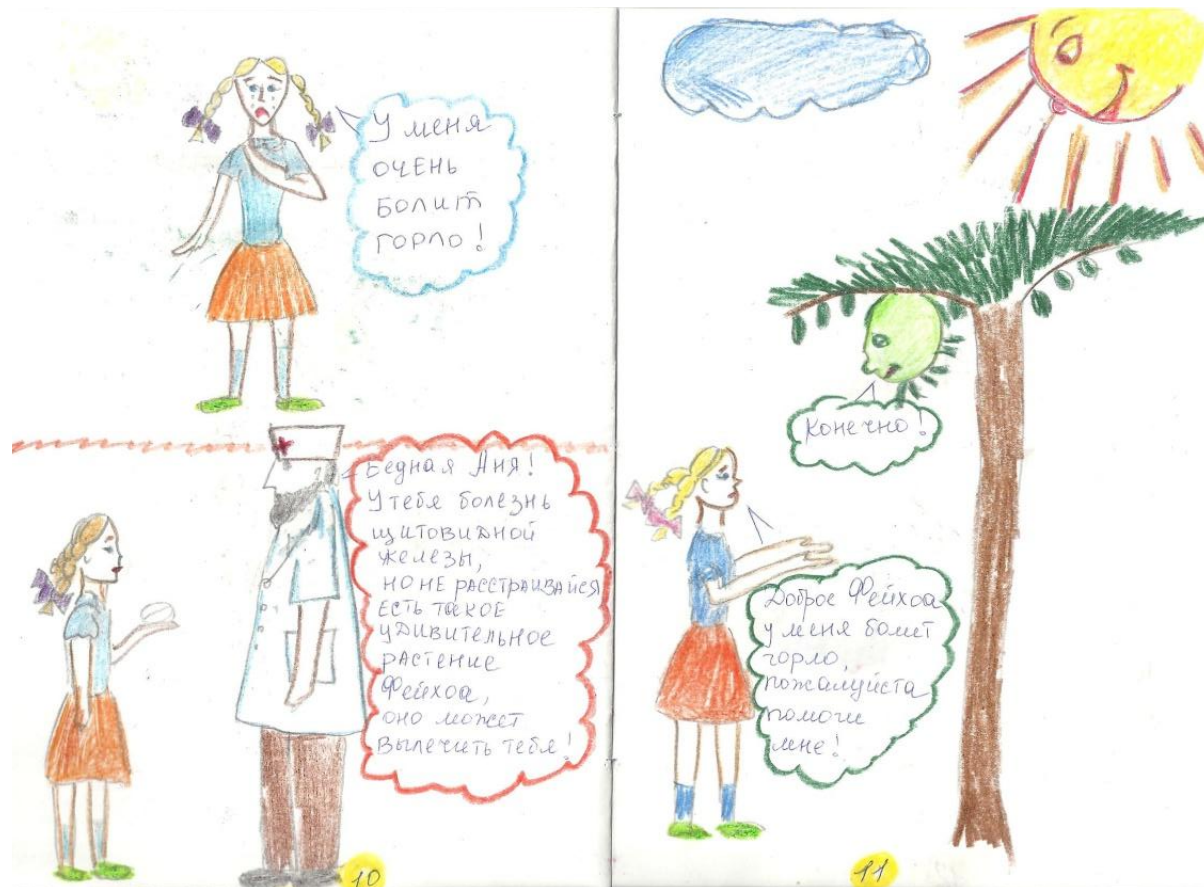 У меня
ОЧЕНЬ
БОЛИТ
ГОРЛО!
Бедная Аня!
У тебя болезнь
щитовидной
железы,
НО НЕ РАССТРАИВАЙСЯ
ЕСТЬ ТАКОЕ
УДИВИТЕЛЬНОЕ
РАСТЕНИЕ
Фейхоа,
оно может
вылечить тебя!
10
Конечно!
Доброе Фейхоа
у меня болит
горло,
пожалуйста
помоги
мне!
11